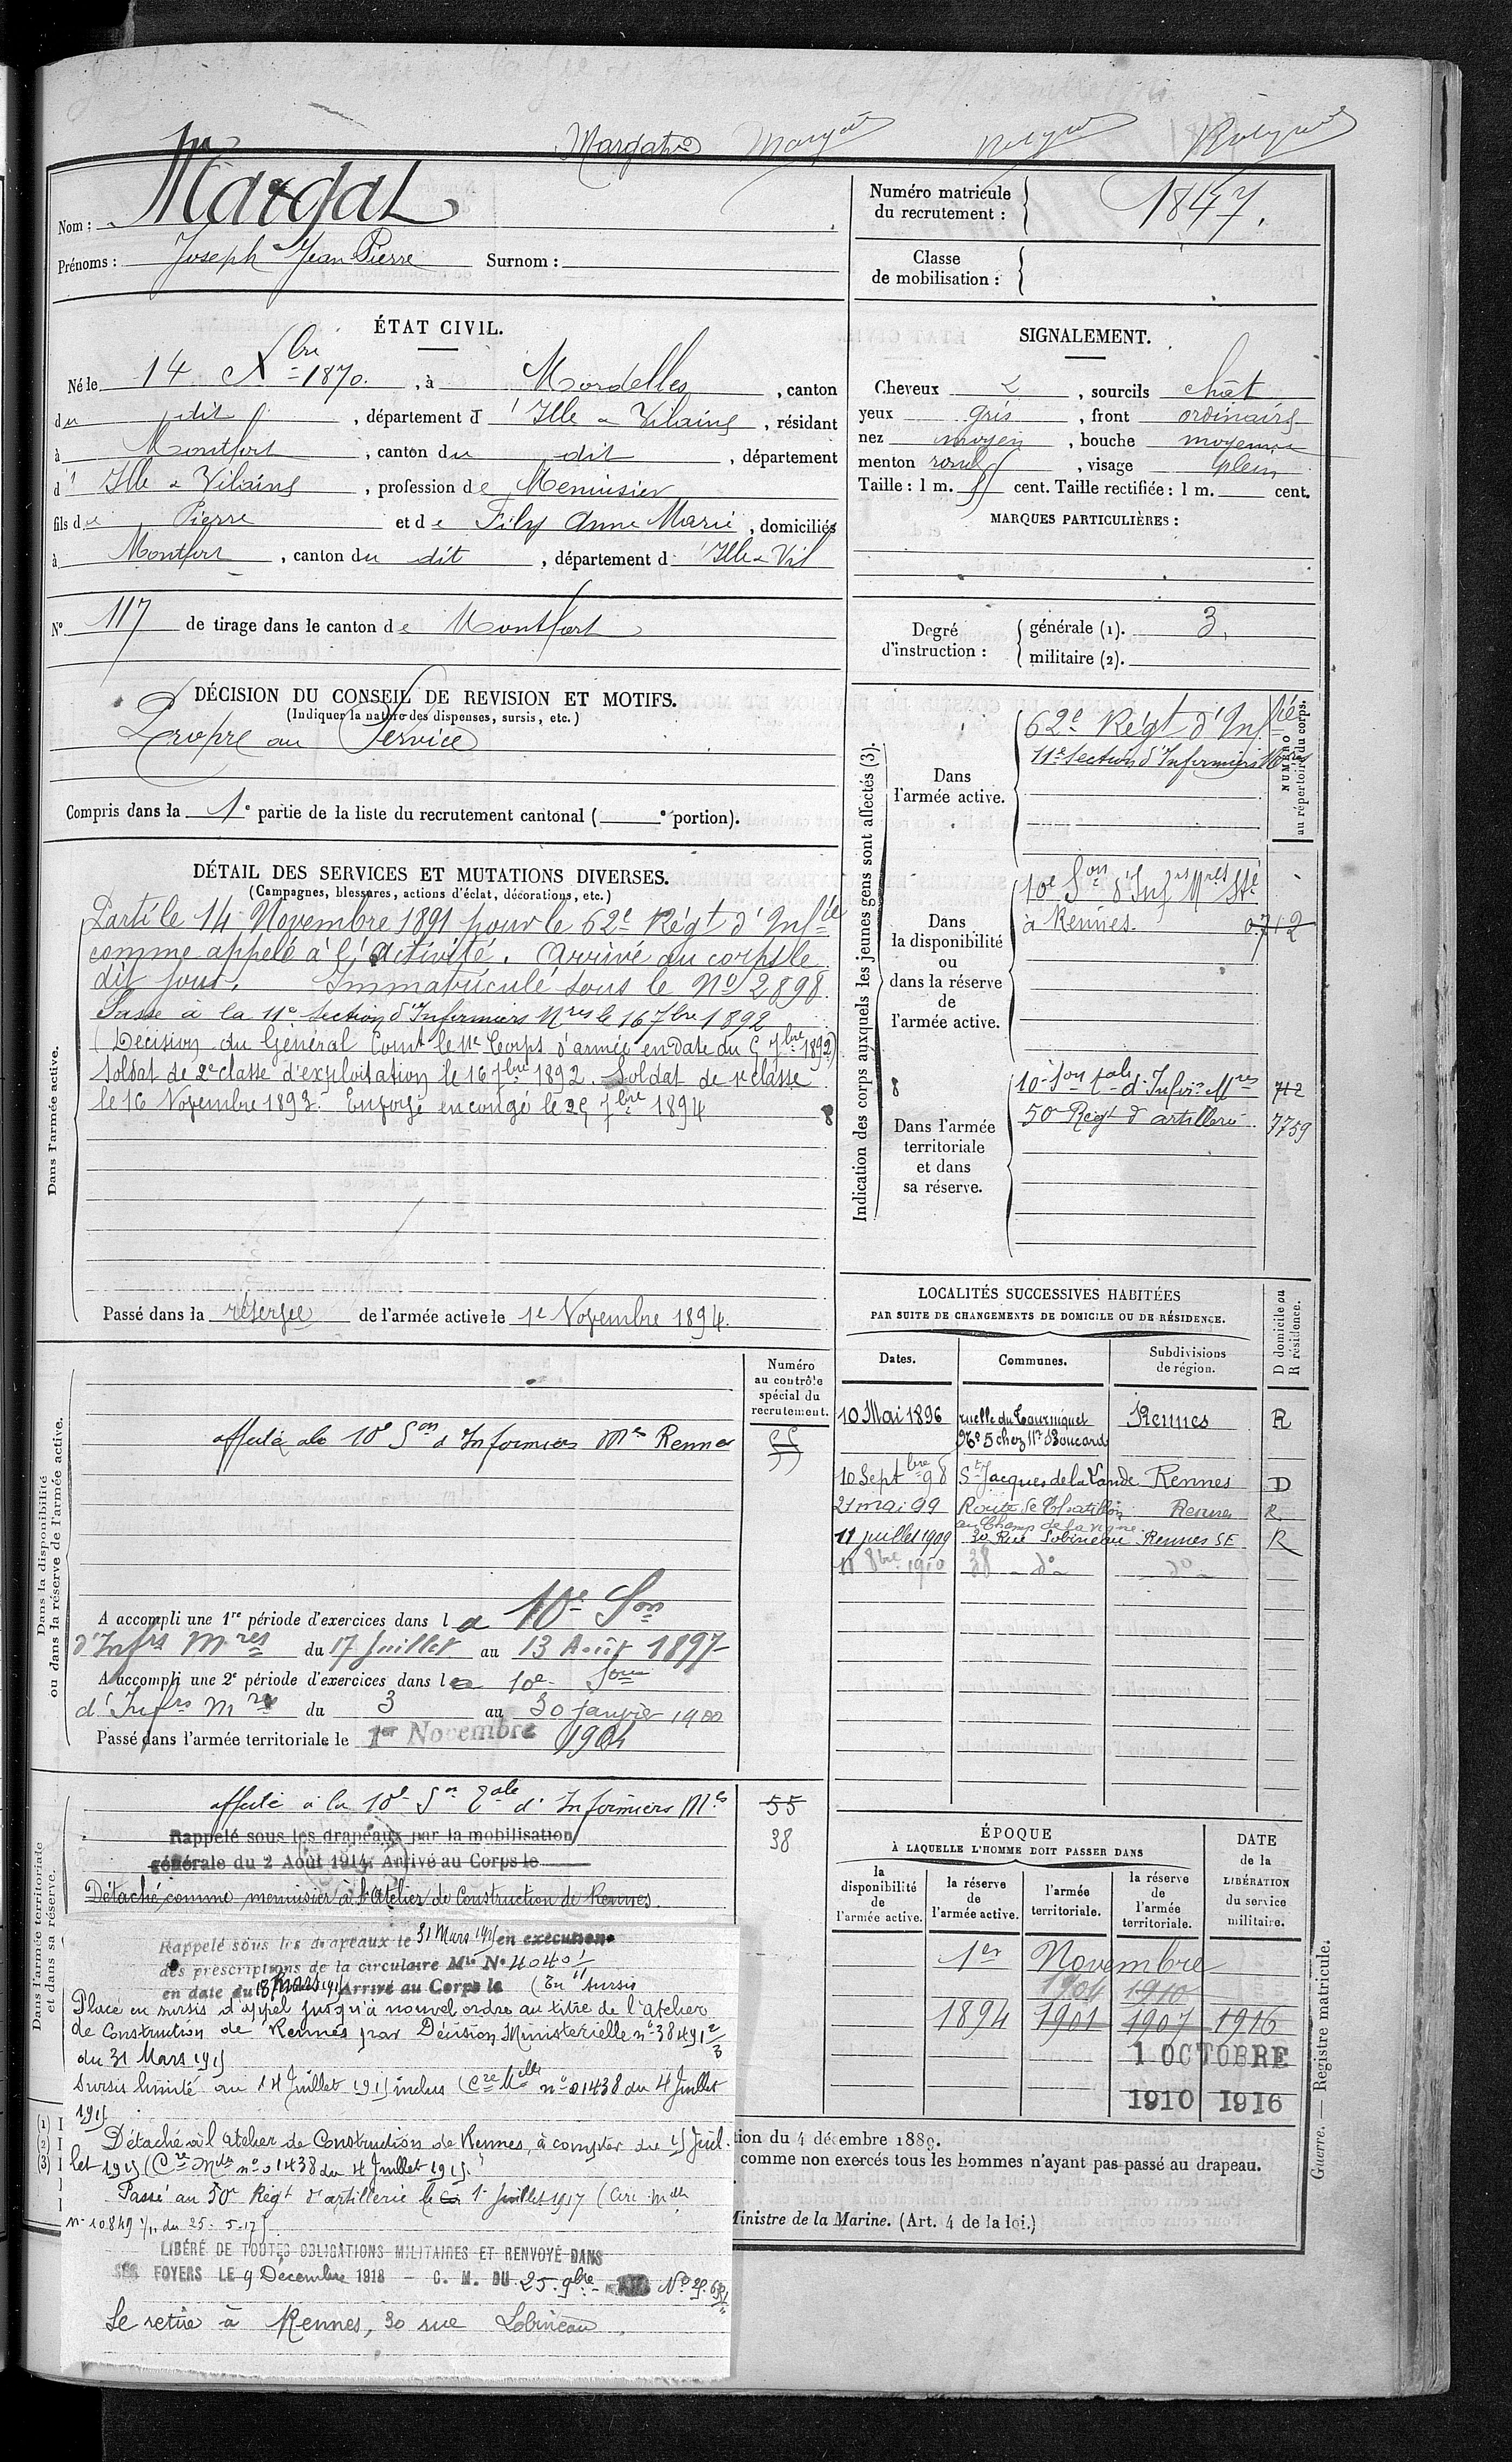 Nom : Margat
Prénoms : Joseph Jean Pierre Surnom :
Numéro matricule du recrutement : 1847.
Classe de mobilisation :
ÉTAT CIVIL.
Né le 14 Xbre 1870. , à Mordelles , canton
du dit , département d'Ille & Vilaine , résidant
à Montfort , canton du dit , département
d'Ille & Vilaine , profession de Menuisier
fils de Pierre et de Fily Anne Marie , domiciliés
à Montfort , canton du dit , département d'Ille & Vil
N° 117 de tirage dans le canton de Montfort
SIGNALEMENT.
Cheveux , sourcils chât
yeux gris , front ordinaire
nez moyen , bouche moyenne
menton rond , visage plein
Taille : 1 m. cent. Taille rectifiée : 1 m. cent.
MARQUES PARTICULIÈRES :
Degré d'instruction : générale (1). 3.
militaire (2).
DÉCISION DU CONSEIL DE REVISION ET MOTIFS.
(Indiquer la nature des dispenses, sursis, etc.)
Propre au Service
Compris dans la 1e partie de la liste du recrutement cantonal ( e portion).
DÉTAIL DES SERVICES ET MUTATIONS DIVERSES.
(Campagnes, blessures, actions d'éclat, décorations, etc.)
Dans l'armée active.
Parti le 14 Novembre 1891 pour le 62e Régt d'Infie
comme appelé à l'activité. Arrivé au corps le
dit jour. Immatriculé sous le No 2898.
Passé à la 11e Section d'Infirmiers Mres le 16 7bre 1892
(Décision du Général Comt le 11e Corps d'armée en date du 5 7bre 1892)
Soldat de 2e classe d'exploitation le 16 7bre 1892. Soldat de 1e classe
le 16 Novembre 1893. Envoyé en congé le 25 7bre 1894
Passé dans la réserve de l'armée active le 1e Novembre 1894.
Indication des corps auxquels les jeunes gens sont affectés (3).
NUMÉRO au répertoire du corps.
Dans l'armée active.
62e Régt d'Infie
11e Section d'Infirmiers Mres
Dans la disponibilité ou dans la réserve de l'armée active.
10e Son d'Infrs Mres Sté
à Rennes. 0712
8
Dans l'armée territoriale et dans sa réserve.
10e Son tale d'Infirs Mres 712
50e Régt d'artillerie 7759
Dans la disponibilité ou dans la réserve de l'armée active.
Numéro au contrôle spécial du recrutement.
affecté à la 10e Son d'Infirmiers Mres Rennes 55
A accompli une 1re période d'exercices dans la 10e Son
d'Infrs Mres du 17 Juillet au 13 Août 1897
A accompli une 2e période d'exercices dans la 10e Son
d'Infrs Mres du 3 au 30 Janvier 1900
Passé dans l'armée territoriale le 1er Novembre 1904
LOCALITÉS SUCCESSIVES HABITÉES
PAR SUITE DE CHANGEMENTS DE DOMICILE OU DE RÉSIDENCE.
Dates. Communes. Subdivisions de région. D domicile ou R résidence.
10 Mai 1896 ruelle du Tourniquet Rennes R
No 5 chez Mr Boucard
10 Septbre 98 St Jacques de la Lande Rennes D
21 mai 99 Route de Chatillon Rennes R
au Champ de la vigne
11 juillet 1909 30 Rue Lobineau Rennes SE R
11 8bre 1910 38 do do
Dans l'armée territoriale et dans sa réserve.
affecté à la 10e Son Tale d'Infirmiers Mres 55
38
Rappelé sous les drapeaux par la mobilisation
générale du 2 Août 1914. Arrivé au Corps le
Détaché comme menuisier à l'Atelier de Construction de Rennes.
Rappelé sous les drapeaux le 31 Mars 1915 en execution
des prescriptions de la circulaire Mlle No 4040 1/11
en date du 18 Mars 1915 Arrivé au Corps le (En sursis
Placé en sursis d'appel jusqu'à nouvel ordre au titre de l'atelier
de Construction de Rennes par Décision Ministérielle no 38491 2/3
du 31 Mars 1915
Sursis limité au 14 Juillet 1915 inclus (Cre Mlle no 01438 du 4 Juillet
1915.
Détaché à l'atelier de Construction de Rennes, à compter du 15 Juil.
let 1915 (Cre Mlle no 01438 du 4 Juillet 1915.
Passé au 50e Régt d'artillerie le 1er Juillet 1917 (Circ. Mlle
no 10849 1/11 du 25-5-17).
LIBÉRÉ DE TOUTES OBLIGATIONS MILITAIRES ET RENVOYÉ DANS
SES FOYERS LE 9 Décembre 1918 - C. M. DU 25 9bre
Se retire à Rennes, 30 rue Lobineau.
ÉPOQUE
À LAQUELLE L'HOMME DOIT PASSER DANS
la disponibilité de l'armée active. la réserve de l'armée active. l'armée territoriale. la réserve de l'armée territoriale.
DATE de la LIBÉRATION du service militaire.
1er Novembre
1904 1910
1894 1901 1907 1916
1 OCTOBRE
1910 1916
(1)
(2)
(3)
tion du 4 décembre 1889.
comme non exercés tous les hommes n'ayant pas passé au drapeau.
Ministre de la Marine. (Art. 4 de la loi.)
Guerre. — Registre matricule.